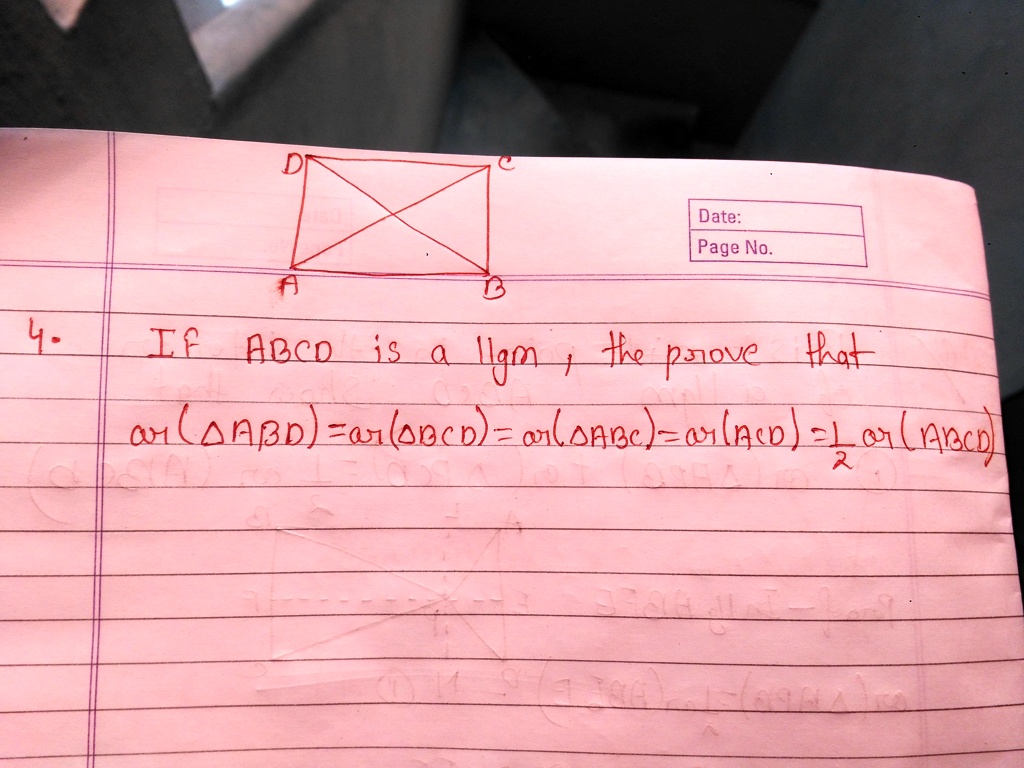 D C
Date:
Page No.
A B
4. If ABCD is a llgm, the prove that
ar(△ABD)=ar(△BCD)=ar(△ABC)=ar(ACD)=1/2 ar(ABCD)